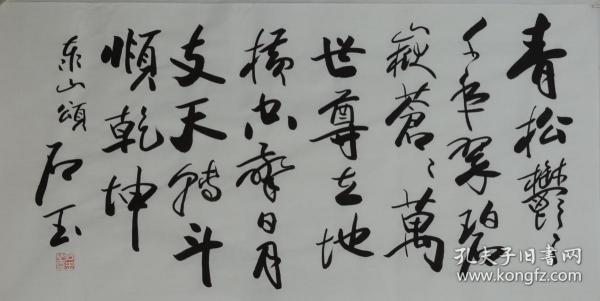 青松鬱〻
千年翠碧
嶽蒼〻萬
世尊立地
横空日月
支天轉斗
順乾坤
泰山頌
石玉
孔夫子旧书网
www.kongfz.com